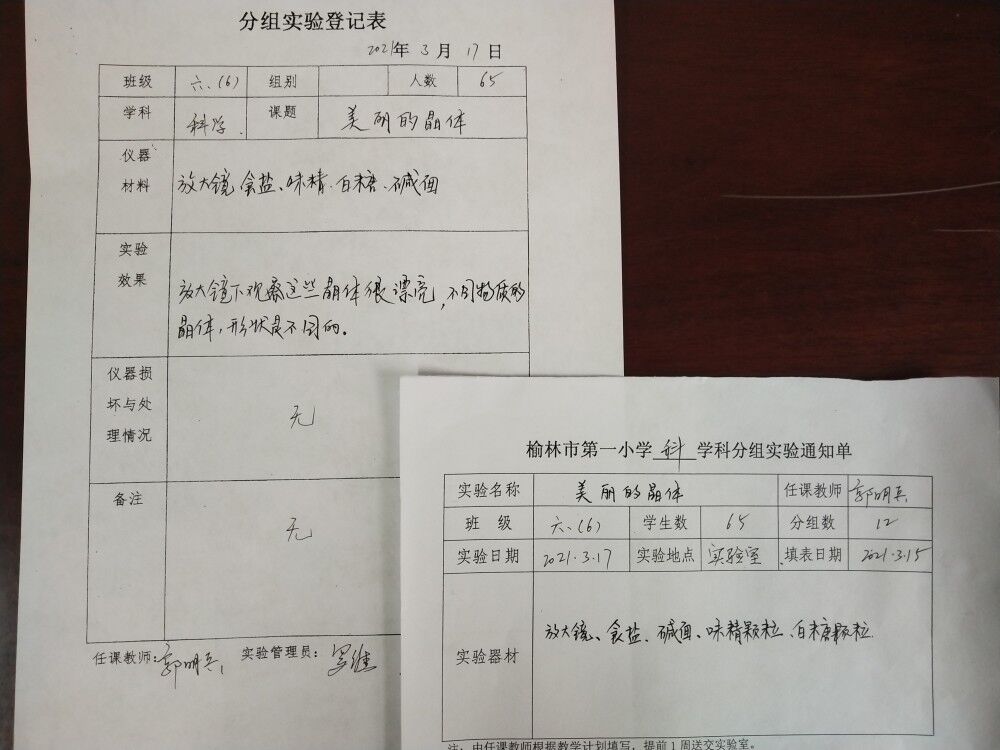 分组实验登记表
2021年 3 月 17 日
班级 六、(6) 组别 人数 65
学科 科学. 课题 美丽的晶体
仪器
材料 放大镜、食盐、味精、白糖、碱面
实验
效果 放大镜下观察这些晶体很漂亮,不同物质的
晶体,形状是不同的。
仪器损
坏与处
理情况 无
备注 无
任课教师:郭明兵 实验管理员:
榆林市第一小学 科 学科分组实验通知单
实验名称 美丽的晶体 任课教师 郭明兵
班 级 六、(6) 学生数 65 分组数 12
实验日期 2021.3.17 实验地点 实验室 填表日期 2021.3.15
实验器材 放大镜、食盐、碱面、味精颗粒、白糖颗粒
注:由任课教师根据教学计划填写,提前1周送交实验室。